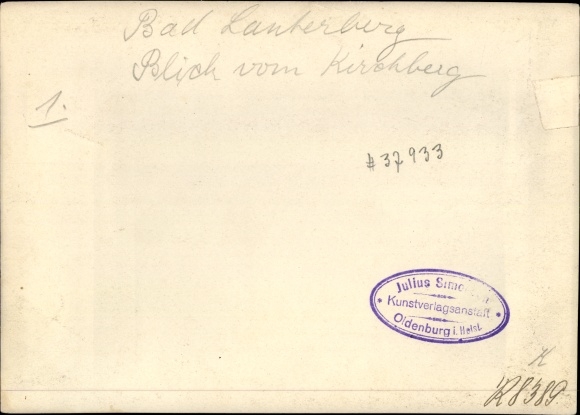 Bad Lauterberg
Blick vom Kirchberg
1.
#37933
Julius
Kunstverlagsanstalt
Oldenburg i. Holst.
K
R8389